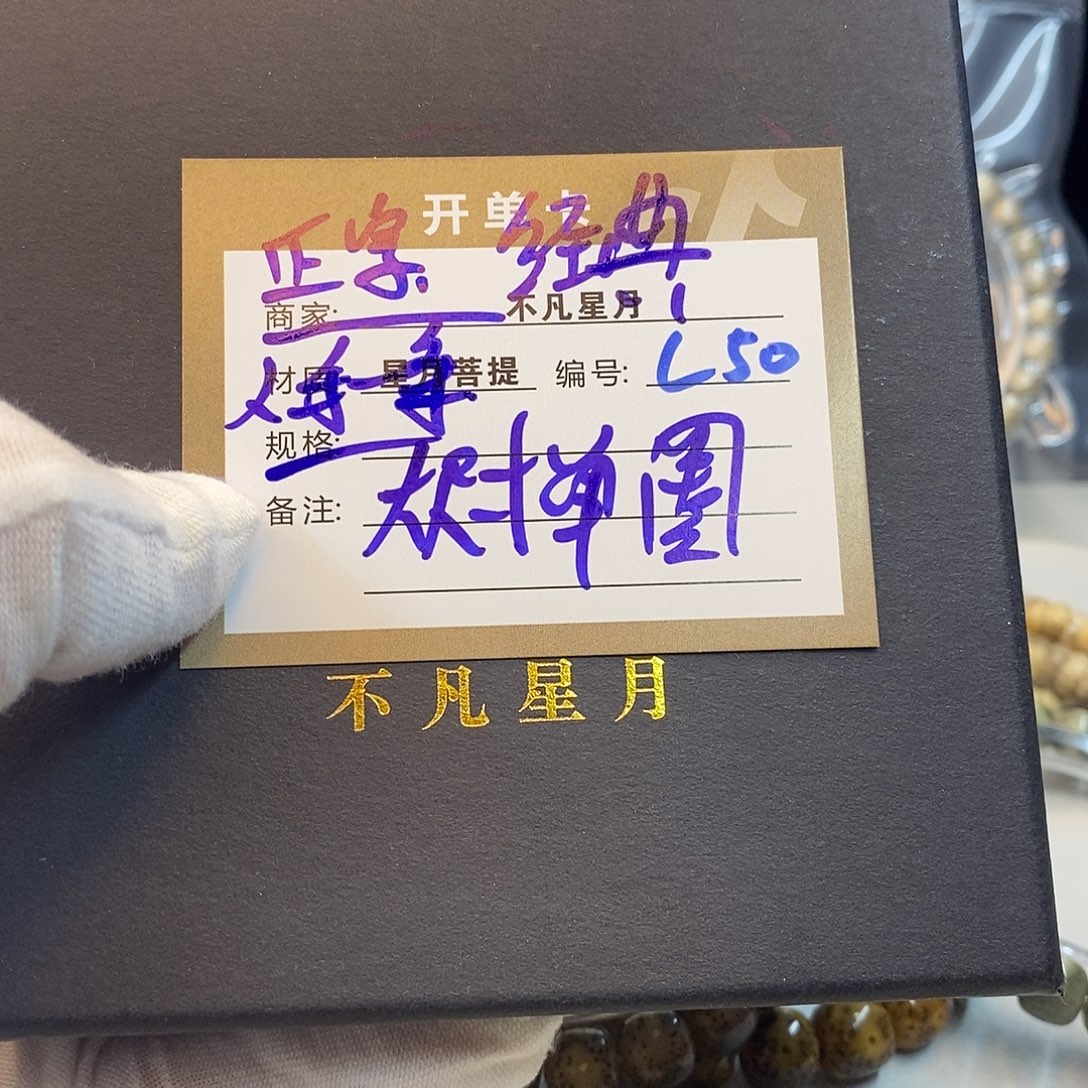 开单卡
正宗 经典
商家: 不凡星月
材质: 星月菩提 编号: L50
规格:
备注:
不凡星月